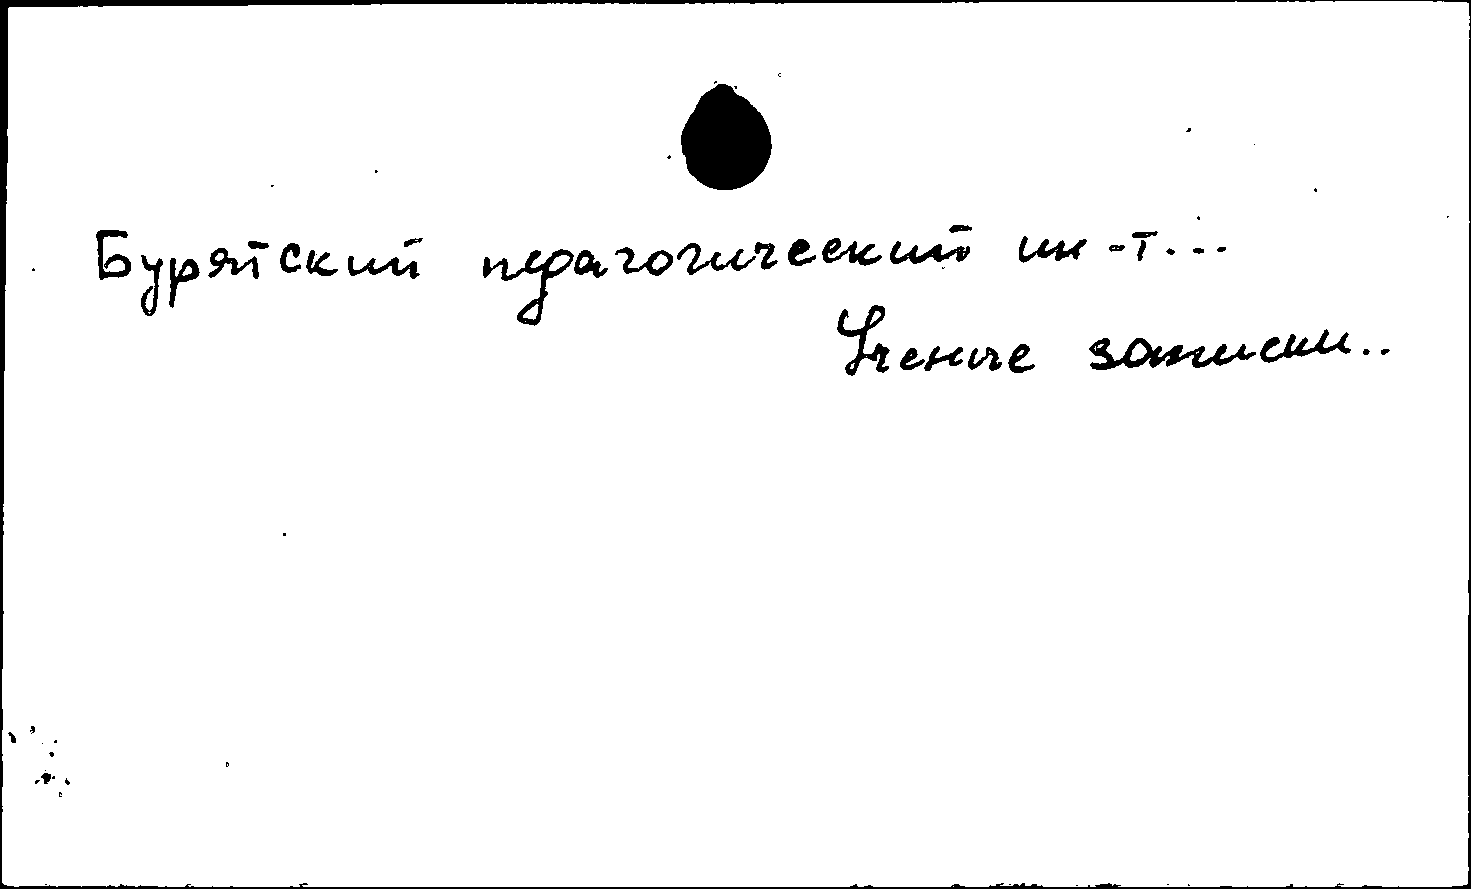 Бурятский педагогический ин-т...
Ученые записки..